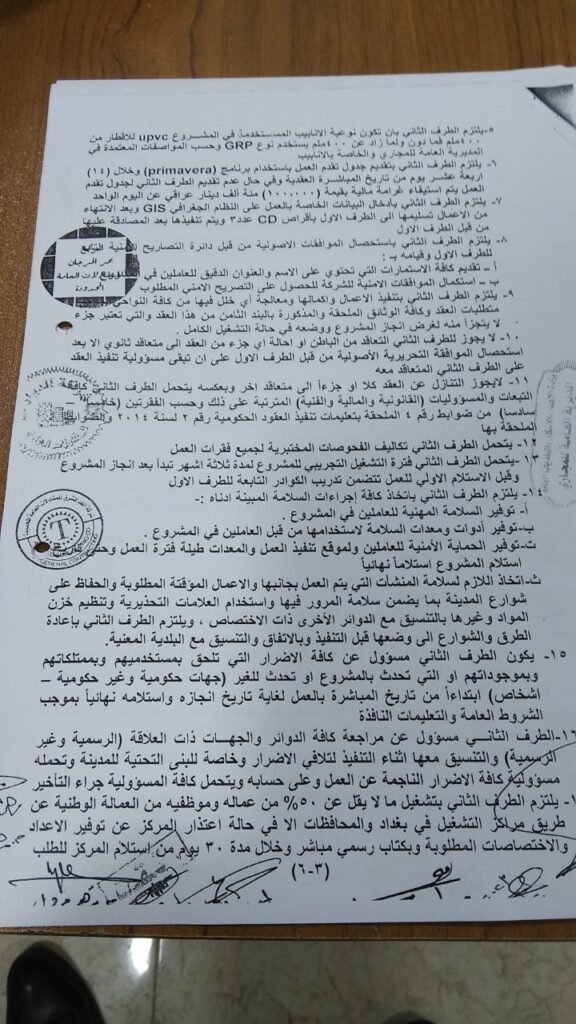 ٥-يلتزم الطرف الثاني بان تكون نوعية الانابيب المستخدمة في المشروع upvc للاقطار من
٤٠٠ملم فما دون ولما زاد عن ٤٠٠ملم يستخدم نوع GRP وحسب المواصفات المعتمدة في
المديرية العامة للمجاري والخاصة بالانابيب
٦- يلتزم الطرف الثاني بتقديم جدول تقدم العمل باستخدام برنامج (primavera) وخلال (١٤)
اربعة عشر يوم من تاريخ المباشرة العقدية وفي حال عدم تقديم الطرف الثاني لجدول تقدم
العمل يتم استيفاء غرامة مالية بقيمة (١٠٠٠٠٠) مئة ألف دينار عراقي عن اليوم الواحد
٧- يلتزم الطرف الثاني بأدخال البيانات الخاصة بالعمل على النظام الجغرافي GIS وبعد الانتهاء
من الاعمال تسليمها الى الطرف الاول بأقراص CD عدد٣ ويتم تنفيذها بعد المصادقة عليها
من قبل الطرف الاول
٨- يلتزم الطرف الثاني باستحصال الموافقات الاصولية من قبل دائرة التصاريح الامنية
للطرف الاول وقيامه بـ :
أ – تقديم كافة الاستمارات التي تحتوي على الاسم والعنوان الدقيق للعاملين في
ب – استكمال الموافقات الامنية للشركة للحصول على التصريح الامني المطلوب
٩- يلتزم الطرف الثاني بتنفيذ الاعمال واكمالها ومعالجة أي خلل فيها من كافة النواحي
متطلبات العقد وكافة الوثائق الملحقة والمذكورة بالبند الثامن من هذا العقد والتي تعتبر جزء
لا يتجزأ منه لغرض انجاز المشروع ووضعه في حالة التشغيل الكامل .
١٠- لا يجوز للطرف الثاني التعاقد من الباطن او احالة اي جزء من العقد الى متعاقد ثانوي الا بعد
استحصال الموافقة التحريرية الأصولية من قبل الطرف الاول على ان تبقى مسؤولية تنفيذ العقد
على الطرف الثاني المتعاقد معه
١١- لايجوز التنازل عن العقد كلا او جزءاً الى متعاقد اخر وبعكسه يتحمل الطرف الثاني كافة
التبعات والمسؤوليات (القانونية والمالية والفنية) المترتبة على ذلك وحسب الفقرتين (خامسا
سادسا) من ضوابط رقم ٤ الملحقة بتعليمات تنفيذ العقود الحكومية رقم ٢ لسنة ٢٠١٤ والضوابط
الملحقة بها
١٢- يتحمل الطرف الثاني تكاليف الفحوصات المختبرية لجميع فقرات العمل
١٣- يتحمل الطرف الثاني فترة التشغيل التجريبي للمشروع لمدة ثلاثة اشهر تبدأ بعد انجاز المشروع
وقبل الاستلام الاولي للعمل تتضمن تدريب الكوادر التابعة للطرف الاول
١٤- يلتزم الطرف الثاني باتخاذ كافة إجراءات السلامة المبينة ادناه :-
أ- توفير السلامة المهنية للعاملين في المشروع .
ب-توفير أدوات ومعدات السلامة لاستخدامها من قبل العاملين في المشروع .
ت-توفير الحماية الأمنية للعاملين ولموقع تنفيذ العمل والمعدات طيلة فترة العمل وحتى
استلام المشروع استلاماً نهائياً
ث-اتخاذ اللازم لسلامة المنشأت التي يتم العمل بجانبها والاعمال المؤقتة المطلوبة والحفاظ على
شوارع المدينة بما يضمن سلامة المرور فيها واستخدام العلامات التحذيرية وتنظيم خزن
المواد وغيرها بالتنسيق مع الدوائر الأخرى ذات الاختصاص ، ويلتزم الطرف الثاني بإعادة
الطرق والشوارع الى وضعها قبل التنفيذ وبالاتفاق والتنسيق مع البلدية المعنية.
١٥- يكون الطرف الثاني مسؤول عن كافة الاضرار التي تلحق بمستخدميهم وبممتلكاتهم
وبموجوداتهم او التي تحدث بالمشروع او تحدث للغير (جهات حكومية وغير حكومية –
اشخاص) ابتداءاً من تاريخ المباشرة بالعمل لغاية تاريخ انجازه واستلامه نهائياً بموجب
الشروط العامة والتعليمات النافذة
١٦-الطرف الثاني مسؤول عن مراجعة كافة الدوائر والجهات ذات العلاقة (الرسمية وغير
الرسمية) والتنسيق معها اثناء التنفيذ لتلافي الاضرار وخاصة للبنى التحتية للمدينة وتحمله
مسؤولية كافة الاضرار الناجمة عن العمل وعلى حسابه ويتحمل كافة المسؤولية جراء التأخير
يلتزم الطرف الثاني بتشغيل ما لا يقل عن ٥٠% من عماله وموظفيه من العمالة الوطنية عن
طريق مراكز التشغيل في بغداد والمحافظات الا في حالة اعتذار المركز عن توفير الاعداد
والاختصاصات المطلوبة وبكتاب رسمي مباشر وخلال مدة ٣٠ يوم من استلام المركز للطلب
(٣-٦)
بحر المرجان
للمقاولات العامة
المحدودة
T
GENERAL CONTRACTING